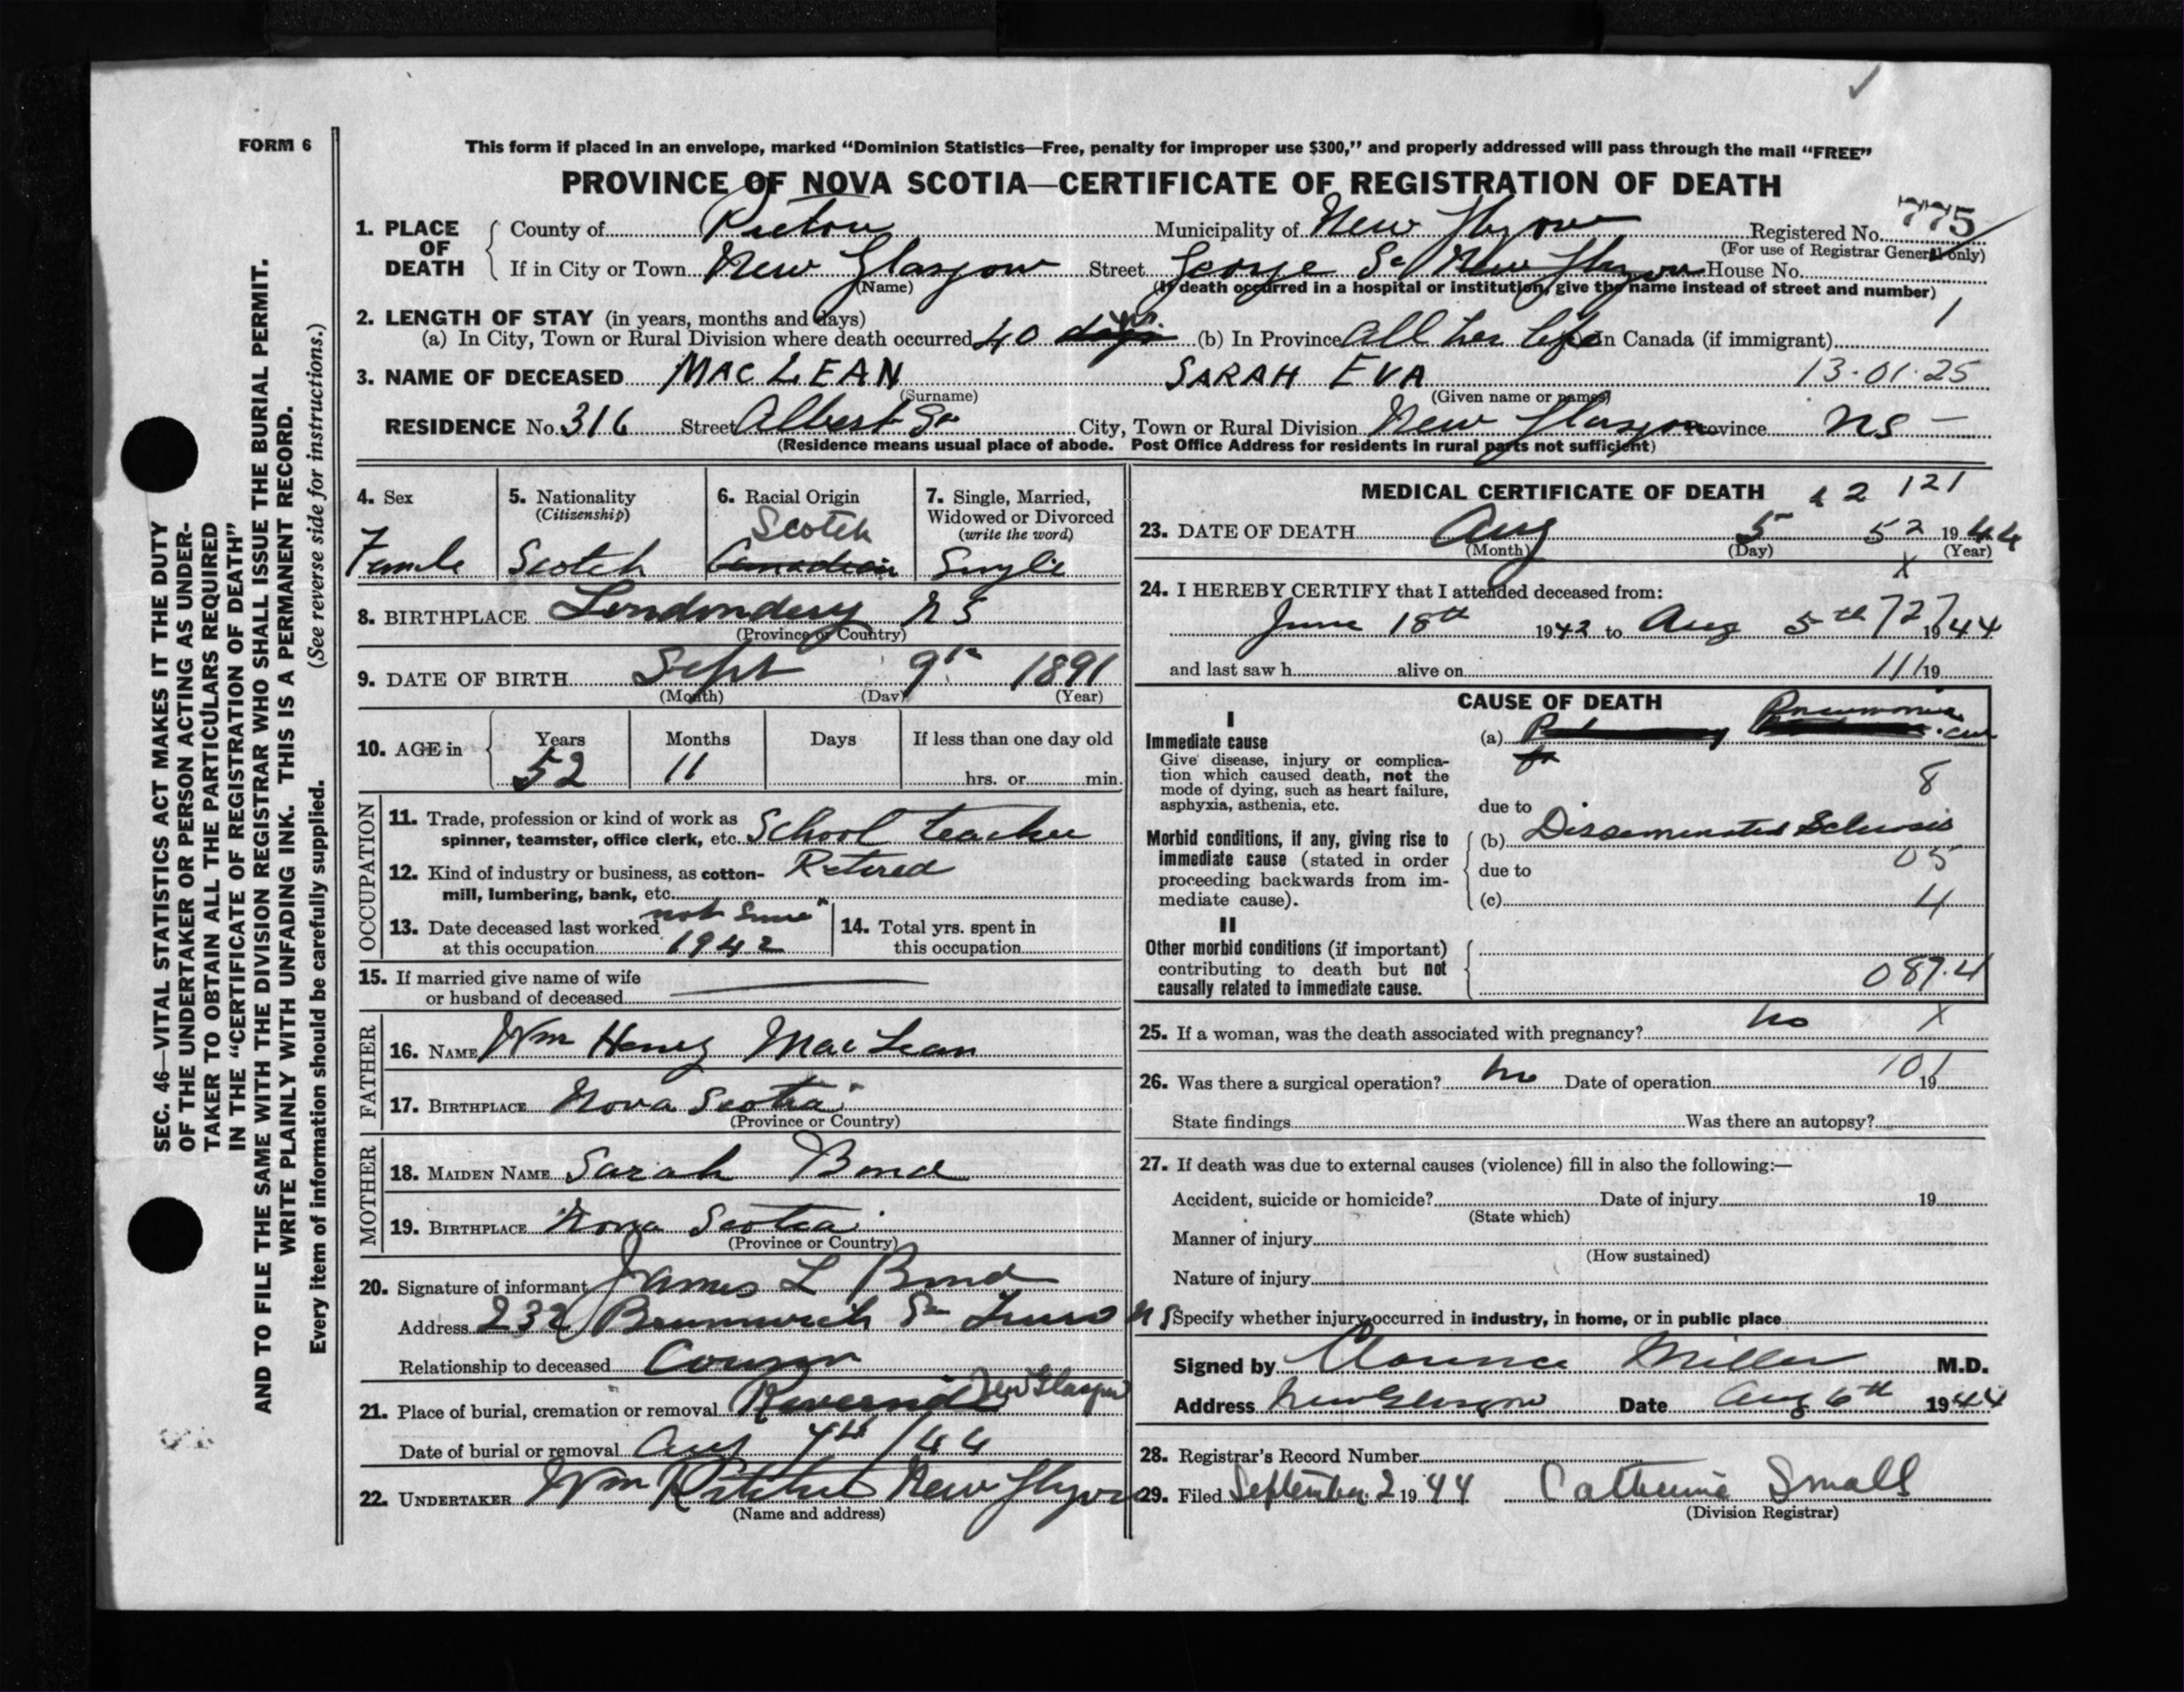 FORM 6
This form if placed in an envelope, marked “Dominion Statistics—Free, penalty for improper use $300,” and properly addressed will pass through the mail “FREE”
PROVINCE OF NOVA SCOTIA—CERTIFICATE OF REGISTRATION OF DEATH
775
1. PLACE OF DEATH County of Pictou Municipality of New Glasgow Registered No.
(For use of Registrar General only)
If in City or Town New Glasgow Street George St New Glasgow House No.
(Name) (If death occurred in a hospital or institution, give the name instead of street and number)
1
2. LENGTH OF STAY (in years, months and days)
(a) In City, Town or Rural Division where death occurred 40 days yrs. (b) In Province All her life In Canada (if immigrant)
3. NAME OF DECEASED MACLEAN SARAH EVA 13·01·25
(Surname) (Given name or names)
RESIDENCE No. 316 Street Albert St City, Town or Rural Division New Glasgow Province NS
(Residence means usual place of abode. Post Office Address for residents in rural parts not sufficient)
4. Sex 5. Nationality (Citizenship) 6. Racial Origin 7. Single, Married, Widowed or Divorced (write the word)
Scotch
Female Scotch Canadian Single
8. BIRTHPLACE Londonderry NS
(Province or Country)
9. DATE OF BIRTH Sept 9th 1891
(Month) (Day) (Year)
10. AGE in Years Months Days If less than one day old
52 11 hrs. or min.
OCCUPATION
11. Trade, profession or kind of work as spinner, teamster, office clerk, etc. School teacher
12. Kind of industry or business, as cotton-mill, lumbering, bank, etc. Retired
13. Date deceased last worked at this occupation not since 1942
14. Total yrs. spent in this occupation
15. If married give name of wife or husband of deceased
FATHER
16. NAME Wm Henry MacLean
17. BIRTHPLACE Nova Scotia
(Province or Country)
MOTHER
18. MAIDEN NAME Sarah Bond
19. BIRTHPLACE Nova Scotia
(Province or Country)
20. Signature of informant James L Bond
Address 232 Brunswick St Truro NS
Relationship to deceased Cousin
21. Place of burial, cremation or removal Riverside New Glasgow
Date of burial or removal Aug 7th /44
22. UNDERTAKER Wm New Glasgow
(Name and address)
MEDICAL CERTIFICATE OF DEATH 12 121
23. DATE OF DEATH Aug 5 52 1944
(Month) (Day) (Year)
X
24. I HEREBY CERTIFY that I attended deceased from:
June 18th 1942 to Aug 5th 727 1944
and last saw h alive on 111 19
CAUSE OF DEATH
I
Immediate cause
Give disease, injury or complication which caused death, not the mode of dying, such as heart failure, asphyxia, asthenia, etc.
(a) Pneumonia
8
due to
Morbid conditions, if any, giving rise to immediate cause (stated in order proceeding backwards from immediate cause).
(b) Disseminated Sclerosis
05
due to
(c) 4
II
Other morbid conditions (if important) contributing to death but not causally related to immediate cause.
087.4
25. If a woman, was the death associated with pregnancy? no X
26. Was there a surgical operation? no Date of operation 101 19
State findings Was there an autopsy?
27. If death was due to external causes (violence) fill in also the following:—
Accident, suicide or homicide? Date of injury 19
(State which)
Manner of injury
(How sustained)
Nature of injury
Specify whether injury occurred in industry, in home, or in public place
Signed by Clarence Miller M.D.
Address New Glasgow Date Aug 6th 1944
28. Registrar's Record Number
29. Filed September 2 1944 Catherine Small
(Division Registrar)
SEC. 46—VITAL STATISTICS ACT MAKES IT THE DUTY
OF THE UNDERTAKER OR PERSON ACTING AS UNDER-
TAKER TO OBTAIN ALL THE PARTICULARS REQUIRED
IN THE “CERTIFICATE OF REGISTRATION OF DEATH”
AND TO FILE THE SAME WITH THE DIVISION REGISTRAR WHO SHALL ISSUE THE BURIAL PERMIT.
WRITE PLAINLY WITH UNFADING INK. THIS IS A PERMANENT RECORD.
Every item of information should be carefully supplied. (See reverse side for instructions.)